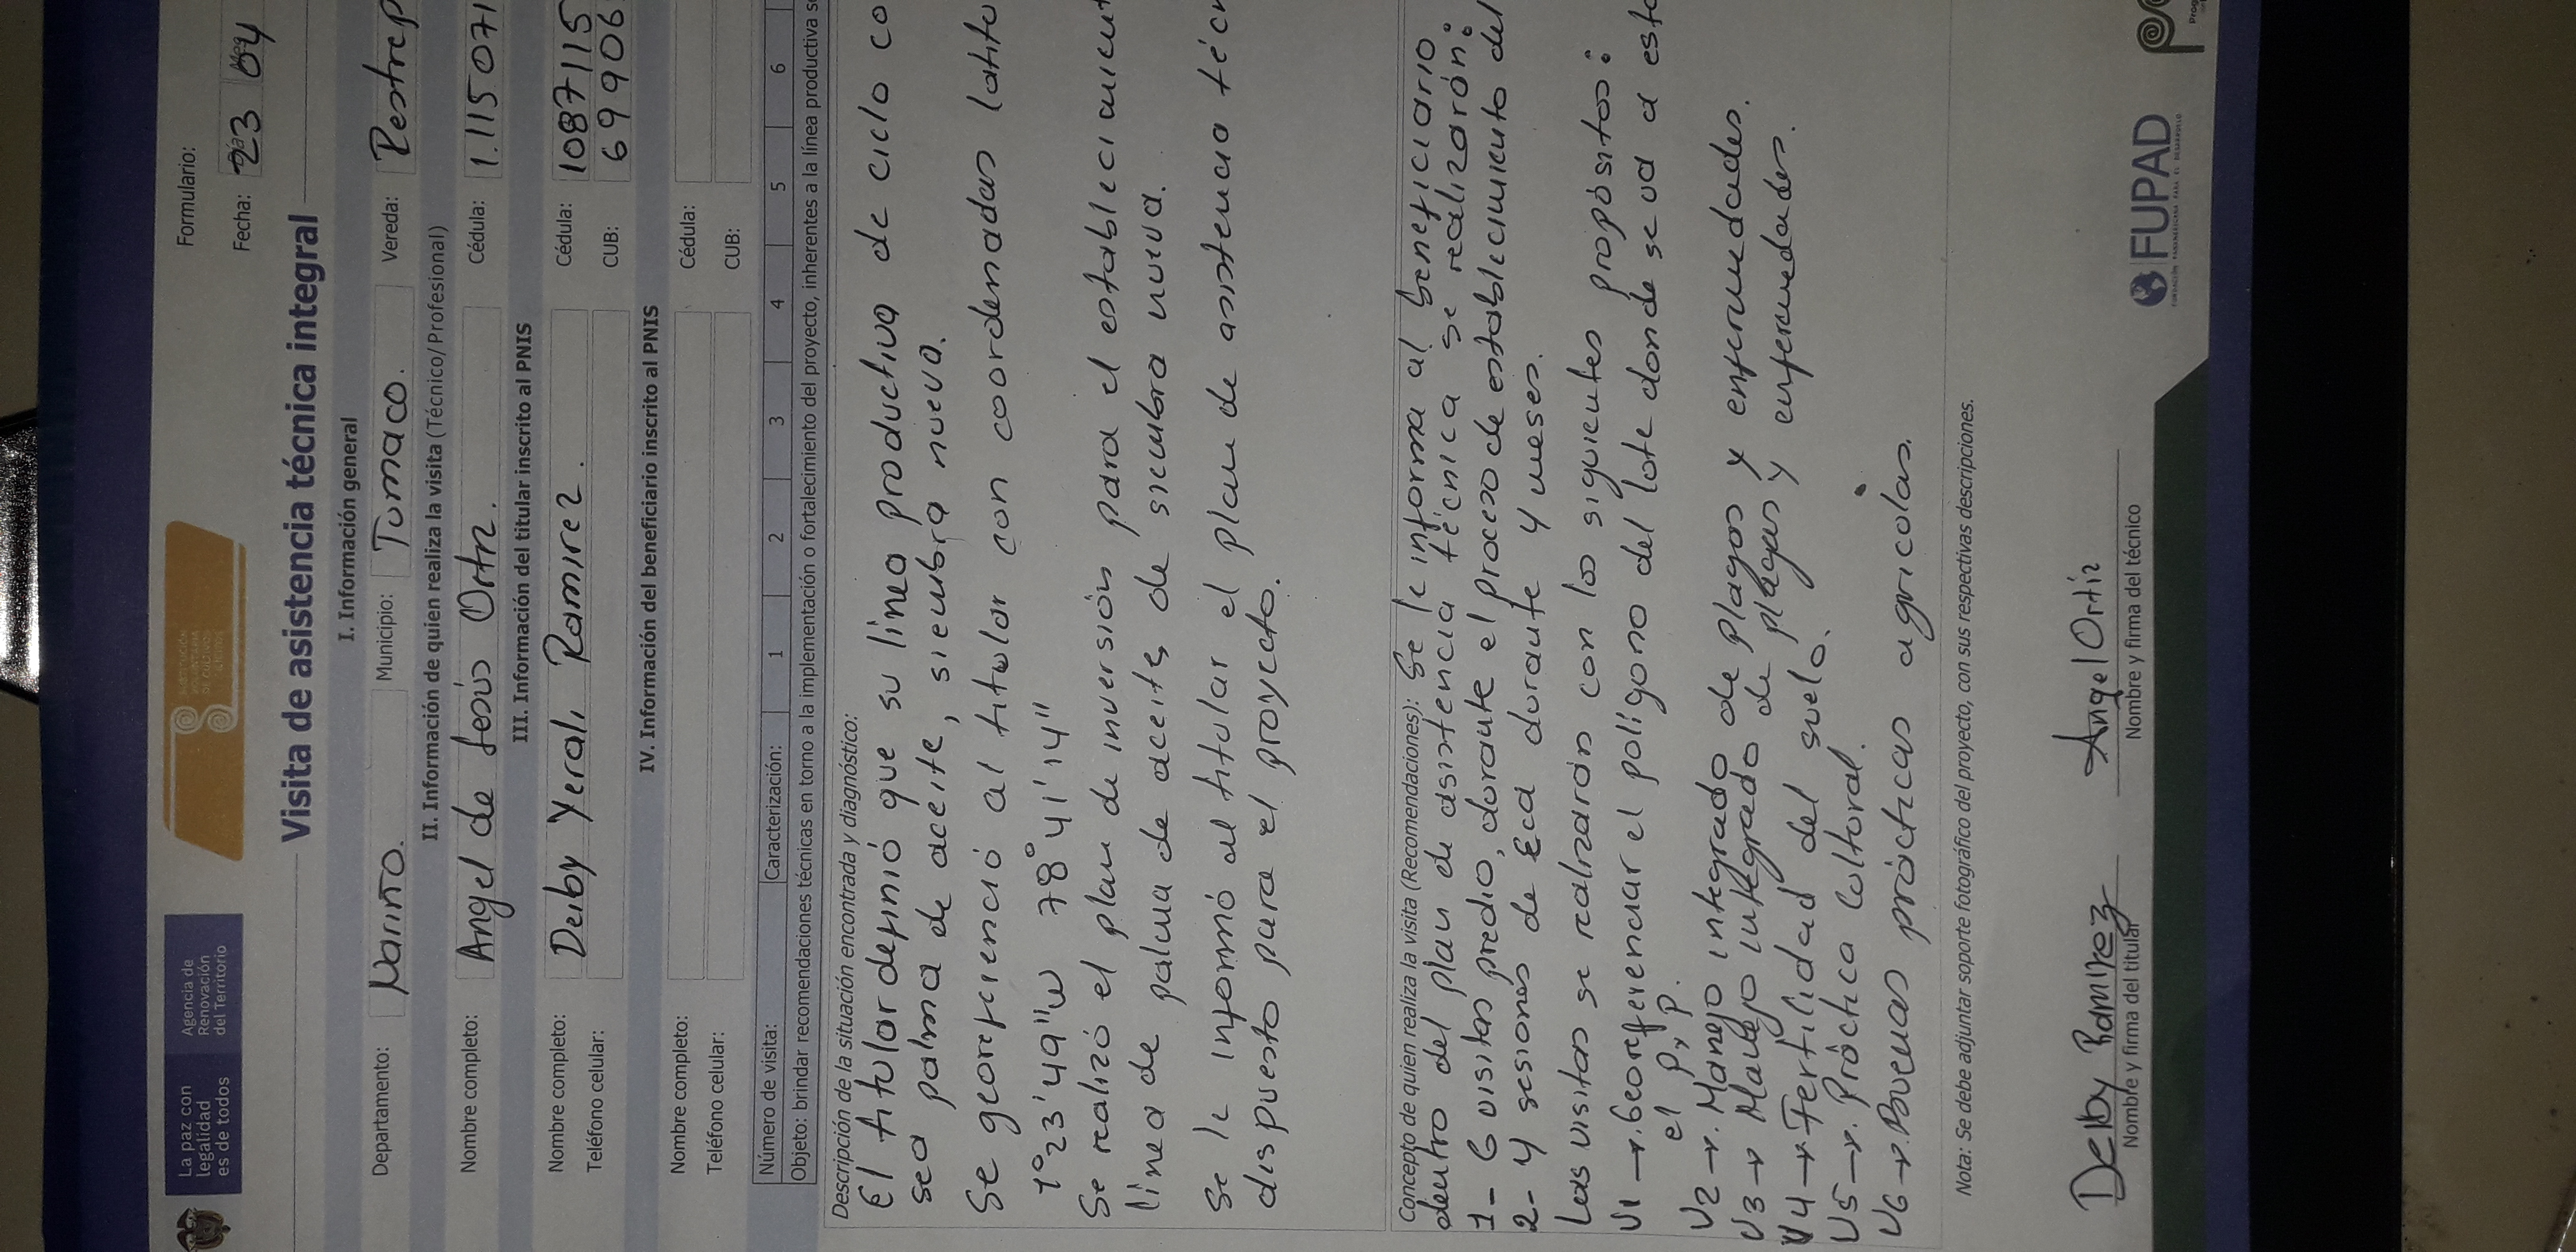 La paz con
legalidad
es de todos
Agencia de
Renovación
del Territorio
SUSTITUCIÓN
VOLUNTARIA
DE CULTIVOS
ILÍCITOS
Formulario:
Fecha: 23 04
Visita de asistencia técnica integral
I. Información general
Departamento: Nariño. Municipio: Tumaco. Vereda: Restrep
II. Información de quien realiza la visita (Técnico/Profesional)
Nombre completo: Angel de Jesús Ortiz. Cédula: 1.115071
III. Información del titular inscrito al PNIS
Nombre completo: Deiby Yerali Ramirez. Cédula: 1087115
Teléfono celular: CUB: 69906
IV. Información del beneficiario inscrito al PNIS
Nombre completo: Cédula:
Teléfono celular: CUB:
Número de visita: Caracterización: 1 2 3 4 5 6
Objeto: brindar recomendaciones técnicas en torno a la implementación o fortalecimiento del proyecto, inherentes a la línea productiva se
Descripción de la situación encontrada y diagnóstico:
El titular definió que su línea productiva de ciclo co
sea palma de aceite, siembra nueva.
Se georeferenció al titular con coordenadas latitu
1°23'49"w 78°41'14"
Se realizó el plan de inversión para el establecimient
línea de palma de aceite, de siembra nueva.
Se le informó al titular el plan de asistencia técn
dispuesto para el proyecto.
Concepto de quien realiza la visita (Recomendaciones): Se le informa al beneficiario
dentro del plan de asistencia técnica se realizarón:
1- 6 visitas predio, durante el proceso de establecimiento del
2- 4 sesiones de Eca durante 4 meses.
Las visitas se realizarán con lo siguientes propósitos:
V1 → Georeferenciar el polígono del lote donde se va a esta
el PxP.
V2 → Manejo integrado de plagas y enfermedades.
V3 → Manejo integrado de plagas y enfermedades.
V4 → Fertilidad del suelo.
V5 → Práctica Cultural.
V6 → Buenas prácticas agrícolas.
Nota: Se debe adjuntar soporte fotográfico del proyecto, con sus respectivas descripciones.
Deiby Ramirez
Nombre y firma del titular
Angel Ortiz
Nombre y firma del técnico
FUPAD
FUNDACIÓN PANAMERICANA PARA EL DESARROLLO
Prog